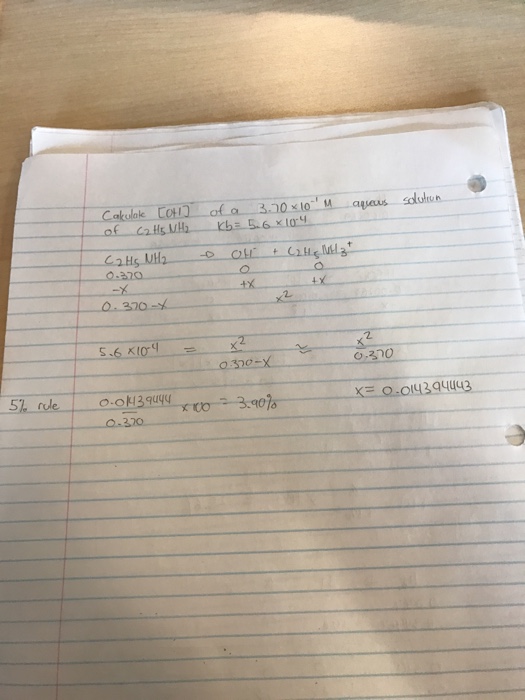 Calculate [OH]⁻ of a 3.70 x 10⁻¹ M aqueous solution
of C2H5NH2 Kb = 5.6 x 10-4
C2H5NH2 → OH⁻ + C2H5NH3⁺
0.370 0 0
-x +x +x
0.370-x x²
5.6 x 10-4 = x²/0.370-x ≈ x²/0.370
x = 0.014394443
5% rule 0.01439444/0.370 x 100 = 3.90%